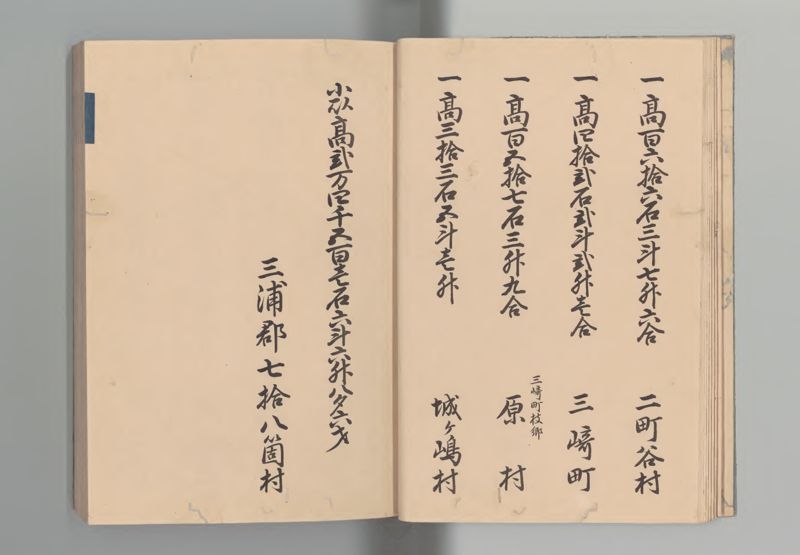 一高百六拾六石三斗七升六合 二町谷村
一高四拾弐石弐斗弐升壱合 三﨑町
一高百五拾七石三升九合 三﨑町枝郷 原村
一高三拾三石五斗壱升 城ヶ嶋村
小以高弐万四千五百壱石六斗六升八夕六才
三浦郡七拾八箇村